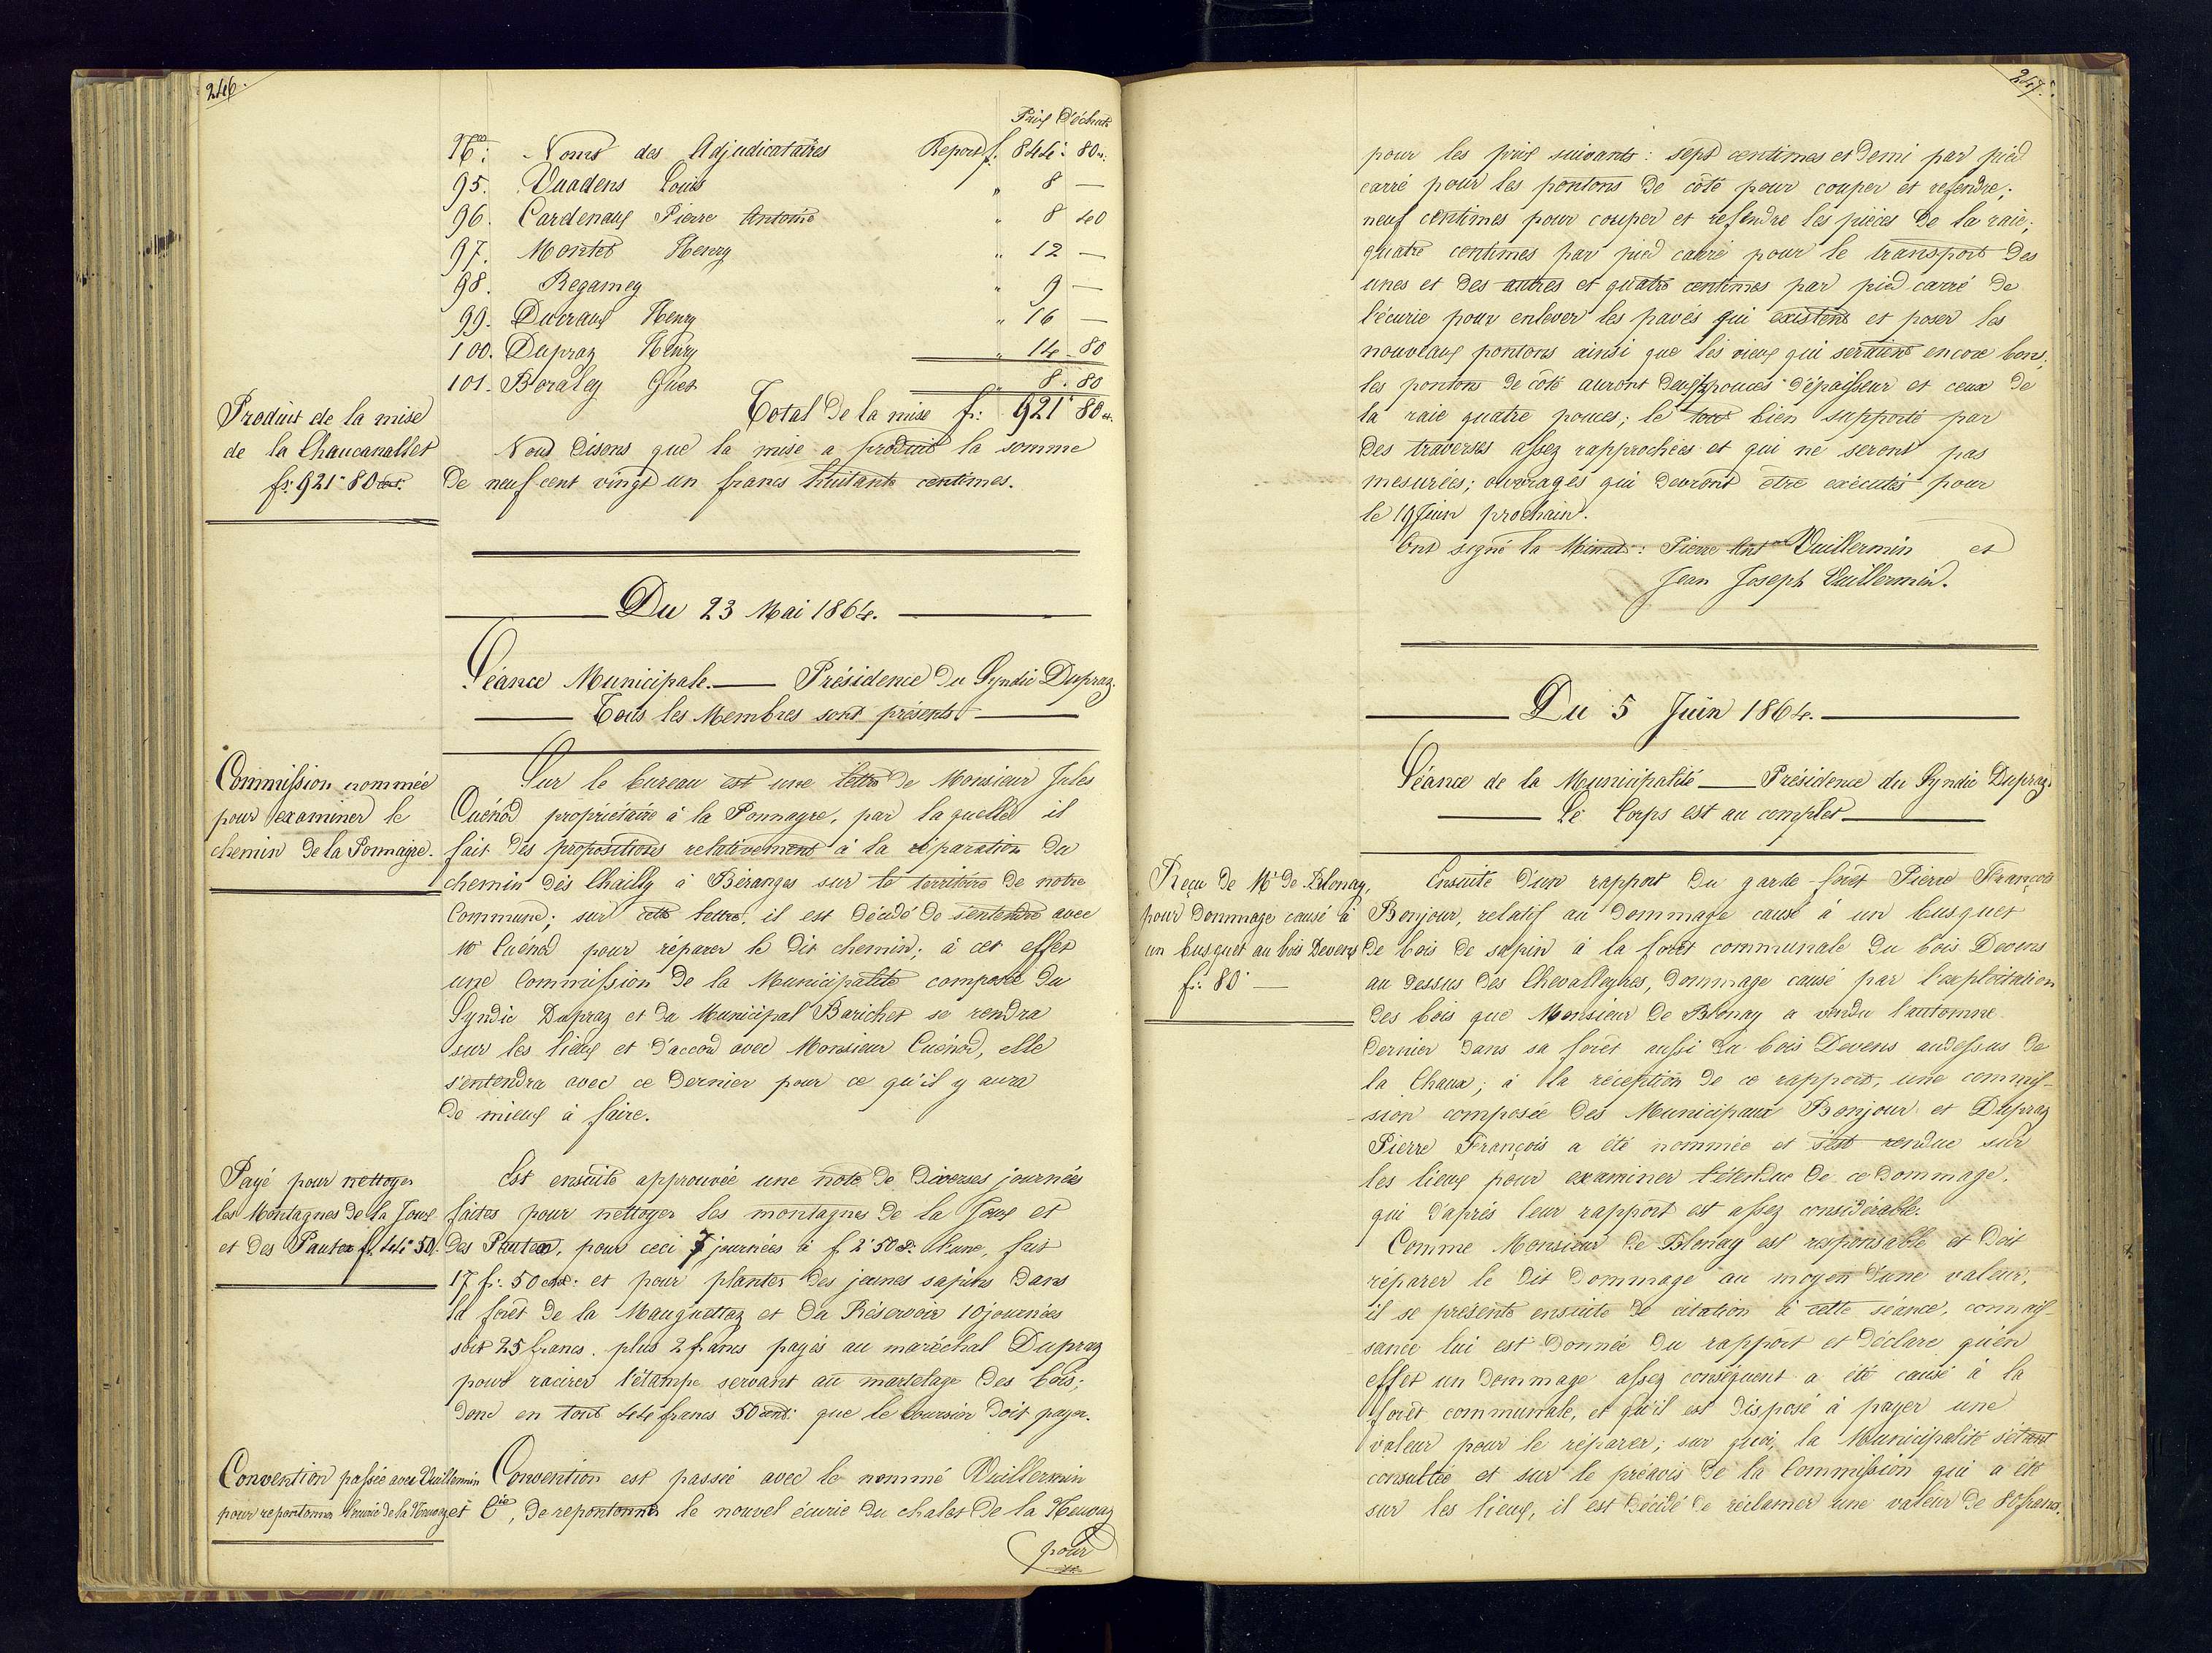 246.
Prix d'échute
Nos: Noms des Adjudicataires Report f. 844. 80 c.
95. Vuadens Louis " 8 —
96. Cardenaux Pierre Antoine " 8 40
97. Montet Henry " 12 —
98. Regamey " 9 —
99. Ducraux Henry " 16 —
100. Dupraz Henry " 14 - 80
101. Boraley " 8 . 80
Total de la mise fr: 921 80 c.
Produit de la mise
de la Chaucanallet
fs: 921 " 80 ct.
Nous disons que la mise a produit la somme
de neuf cent vingt un francs huitante centimes.
Du 23 Mai 1864.
Séance Municipale. — Présidence du Syndic Dupraz.
Tous les Membres sont présents.
Commission nommée
pour examiner le
chemin de la Ponnaigre.
Sur le bureau est une lettre de Monsieur Jules
Cuénod propriétaire à la Ponnagre, par laquelle il
fait des propositions relativement à la réparation du
chemin dès Chailly à Béranges sur le territoire de notre
Commune; sur cette lettre, il est décidé de s'entendre avec
Mr Cuénod pour réparer le dit chemin; à cet effet
une Commission de la Municipalité composée du
Syndic Dupraz et du Municipal Barichet se rendra
sur les lieux et d'accord avec Monsieur Cuénod, elle
s'entendra avec ce dernier pour ce qu'il y aura
de mieux à faire.
Payé pour nettoyer
les Montagnes de la Joux
et des Pautex fr. 44 " 50.
Est ensuite approuvée une note de diverses journées
faites pour nettoyer les montagnes de la Joux et
des Pautex, pour ceci 7 journées à f. 2 " 50 ct. l'une, fait
17 fr. 50 ct. et pour planter des jeunes sapins dans
la forêt de la Mauguettaz et du Réservoir 10 journées
soit 25 francs. plus 2 francs payés au maréchal Dupraz
pour racirer l'étampe servant au martelage des bois;
donc en tout 44 francs 50 cent. que le boursier doit payer.
Convention passée avec Vuillermin
pour repontonner l'écurie de la Neuvaz
Convention est passée avec le nommé Vuillermin
et Cie, de repontonner le nouvel écurie du chalet de la Neuvaz
pour
247.
pour les prix suivants: sept centimes et demi par pied
carré pour les pontons de côté pour couper et refendre;
neuf centimes pour couper et refendre les pièces de la raie;
quatre centimes par pied carré pour le transport des
unes et des autres et quatre centimes par pied carré de
l'écurie pour enlever les pavés qui existent et poser les
nouveaux pontons ainsi que les vieux qui seraient encore bons;
les pontons de côté auront deux ½ pouces d'épaisseur et ceux de
la raie quatre pouces; le tout bien supporté par
des traverses assez rapprochées et qui ne seront pas
mesurées; ouvrages qui devront être exécutés pour
le 19 Juin prochain.
Ont signé la Minute: Pierre Ant ne Vuillermin et
Jean Joseph Vuillermin.
Du 5 Juin 1864.
Séance de la Municipalité — Présidence du Syndic Dupraz.
Le Corps est au complet
Reçu de Mr de Blonay,
pour dommage causé à
un busquet au bois Devens
fr. 80 " —
Ensuite d'un rapport du garde-forêt Pierre François
Bonjour, relatif au dommage causé à un busquet
de bois de sapin à la forêt communale du bois Devens
au dessus des Chevalleyres, dommage causé par l'exploitation
des bois que Monsieur de Blonay a vendu l'automne
dernier dans sa forêt aussi du bois Devens audessus de
la Chaux; à la réception de ce rapport, une commis-
-sion composée des Municipaux Bonjour et Dupraz
Pierre François a été nommée et s'est rendue sur
les lieux pour examiner l'étendue de ce dommage,
qui d'après leur rapport est assez considérable.
Comme Monsieur de Blonay est responsable et doit
réparer le dit dommage au moyen d'une valeur,
il se présente ensuite de citation à cette séance, connais-
sance lui est donnée du rapport et déclare qu'en
effet un dommage assez conséquent a été causé à la
forêt communale, et qu'il est disposé à payer une
valeur pour le réparer; sur quoi, la Municipalité s'étant
consultée et sur le préavis de la Commission qui a été
sur les lieux, il est décidé de réclamer une valeur de 80 francs.